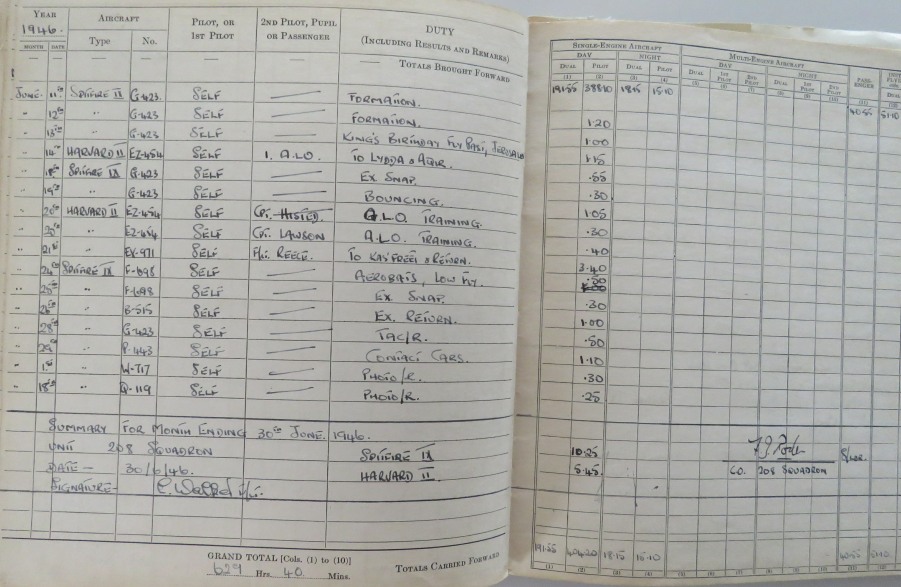 YEAR 1946. AIRCRAFT PILOT, OR 1ST PILOT 2ND PILOT, PUPIL OR PASSENGER DUTY (INCLUDING RESULTS AND REMARKS)
MONTH DATE Type No.
— — — — — — TOTALS BROUGHT FORWARD
JUNE. 11th SPITFIRE IX G-423. SELF —— FORMATION.
" 12th " G-423 SELF —— FORMATION.
" 13th " G-423 SELF —— KING'S BIRTHDAY FLY PAST, JERUSALEM
" 14th HARVARD II EZ-454 SELF 1. A.L.O. TO LYDDA & AQIR.
" 18th SPITFIRE IX G-423 SELF —— EX. SNAP.
" 19th " G-423 SELF —— BOUNCING.
" 20th HARVARD II EZ-454 SELF CPT. A.L.O. TRAINING.
" 20th " EZ-454 SELF CPT. LAWSON A.L.O. TRAINING.
" 21st " EX-971 SELF F/LT. REECE. TO KASFREET & RETURN.
" 24th SPITFIRE IX F-698 SELF —— AEROBATS, LOW FLY.
" 25th " F-698 SELF —— EX. SNAP.
" 26th " B-515 SELF —— EX. RETURN.
" 28th " G-423 SELF —— TAC/R.
" 29th " P-443 SELF —— CONTACT CARS.
" 1st " W-717 SELF —— PHOTO/R.
" 18th " Q-119 SELF —— PHOTO/R.
SUMMARY FOR MONTH ENDING 30th JUNE. 1946.
UNIT 208 SQUADRON SPITFIRE IX
DATE — 30/6/46. HARVARD II.
SIGNATURE—
GRAND TOTAL [Cols. (1) to (10)]
629 Hrs. 40 Mins. TOTALS CARRIED FORWARD
SINGLE-ENGINE AIRCRAFT MULTI-ENGINE AIRCRAFT
DAY NIGHT DAY NIGHT PASSENGER
DUAL PILOT DUAL PILOT DUAL 1ST PILOT 2ND PILOT DUAL 1ST PILOT 2ND PILOT
(1) (2) (3) (4) (5) (6) (7) (8) (9) (10) (11) (12)
191.55 388.10 18.15 15.10 40.55 51.10
1.20
1.00
1.15
.55
.30
1.05
.30
.40
3.40
.50
.30
1.00
.50
1.10
.30
.25
10.25 S/LDR.
5.45. CO. 208 SQUADRON
191.55 404.20 18.15 15.10 40.55 51.10
(1) (2) (3) (4) (5) (6) (7) (8) (9) (10) (11) (12)